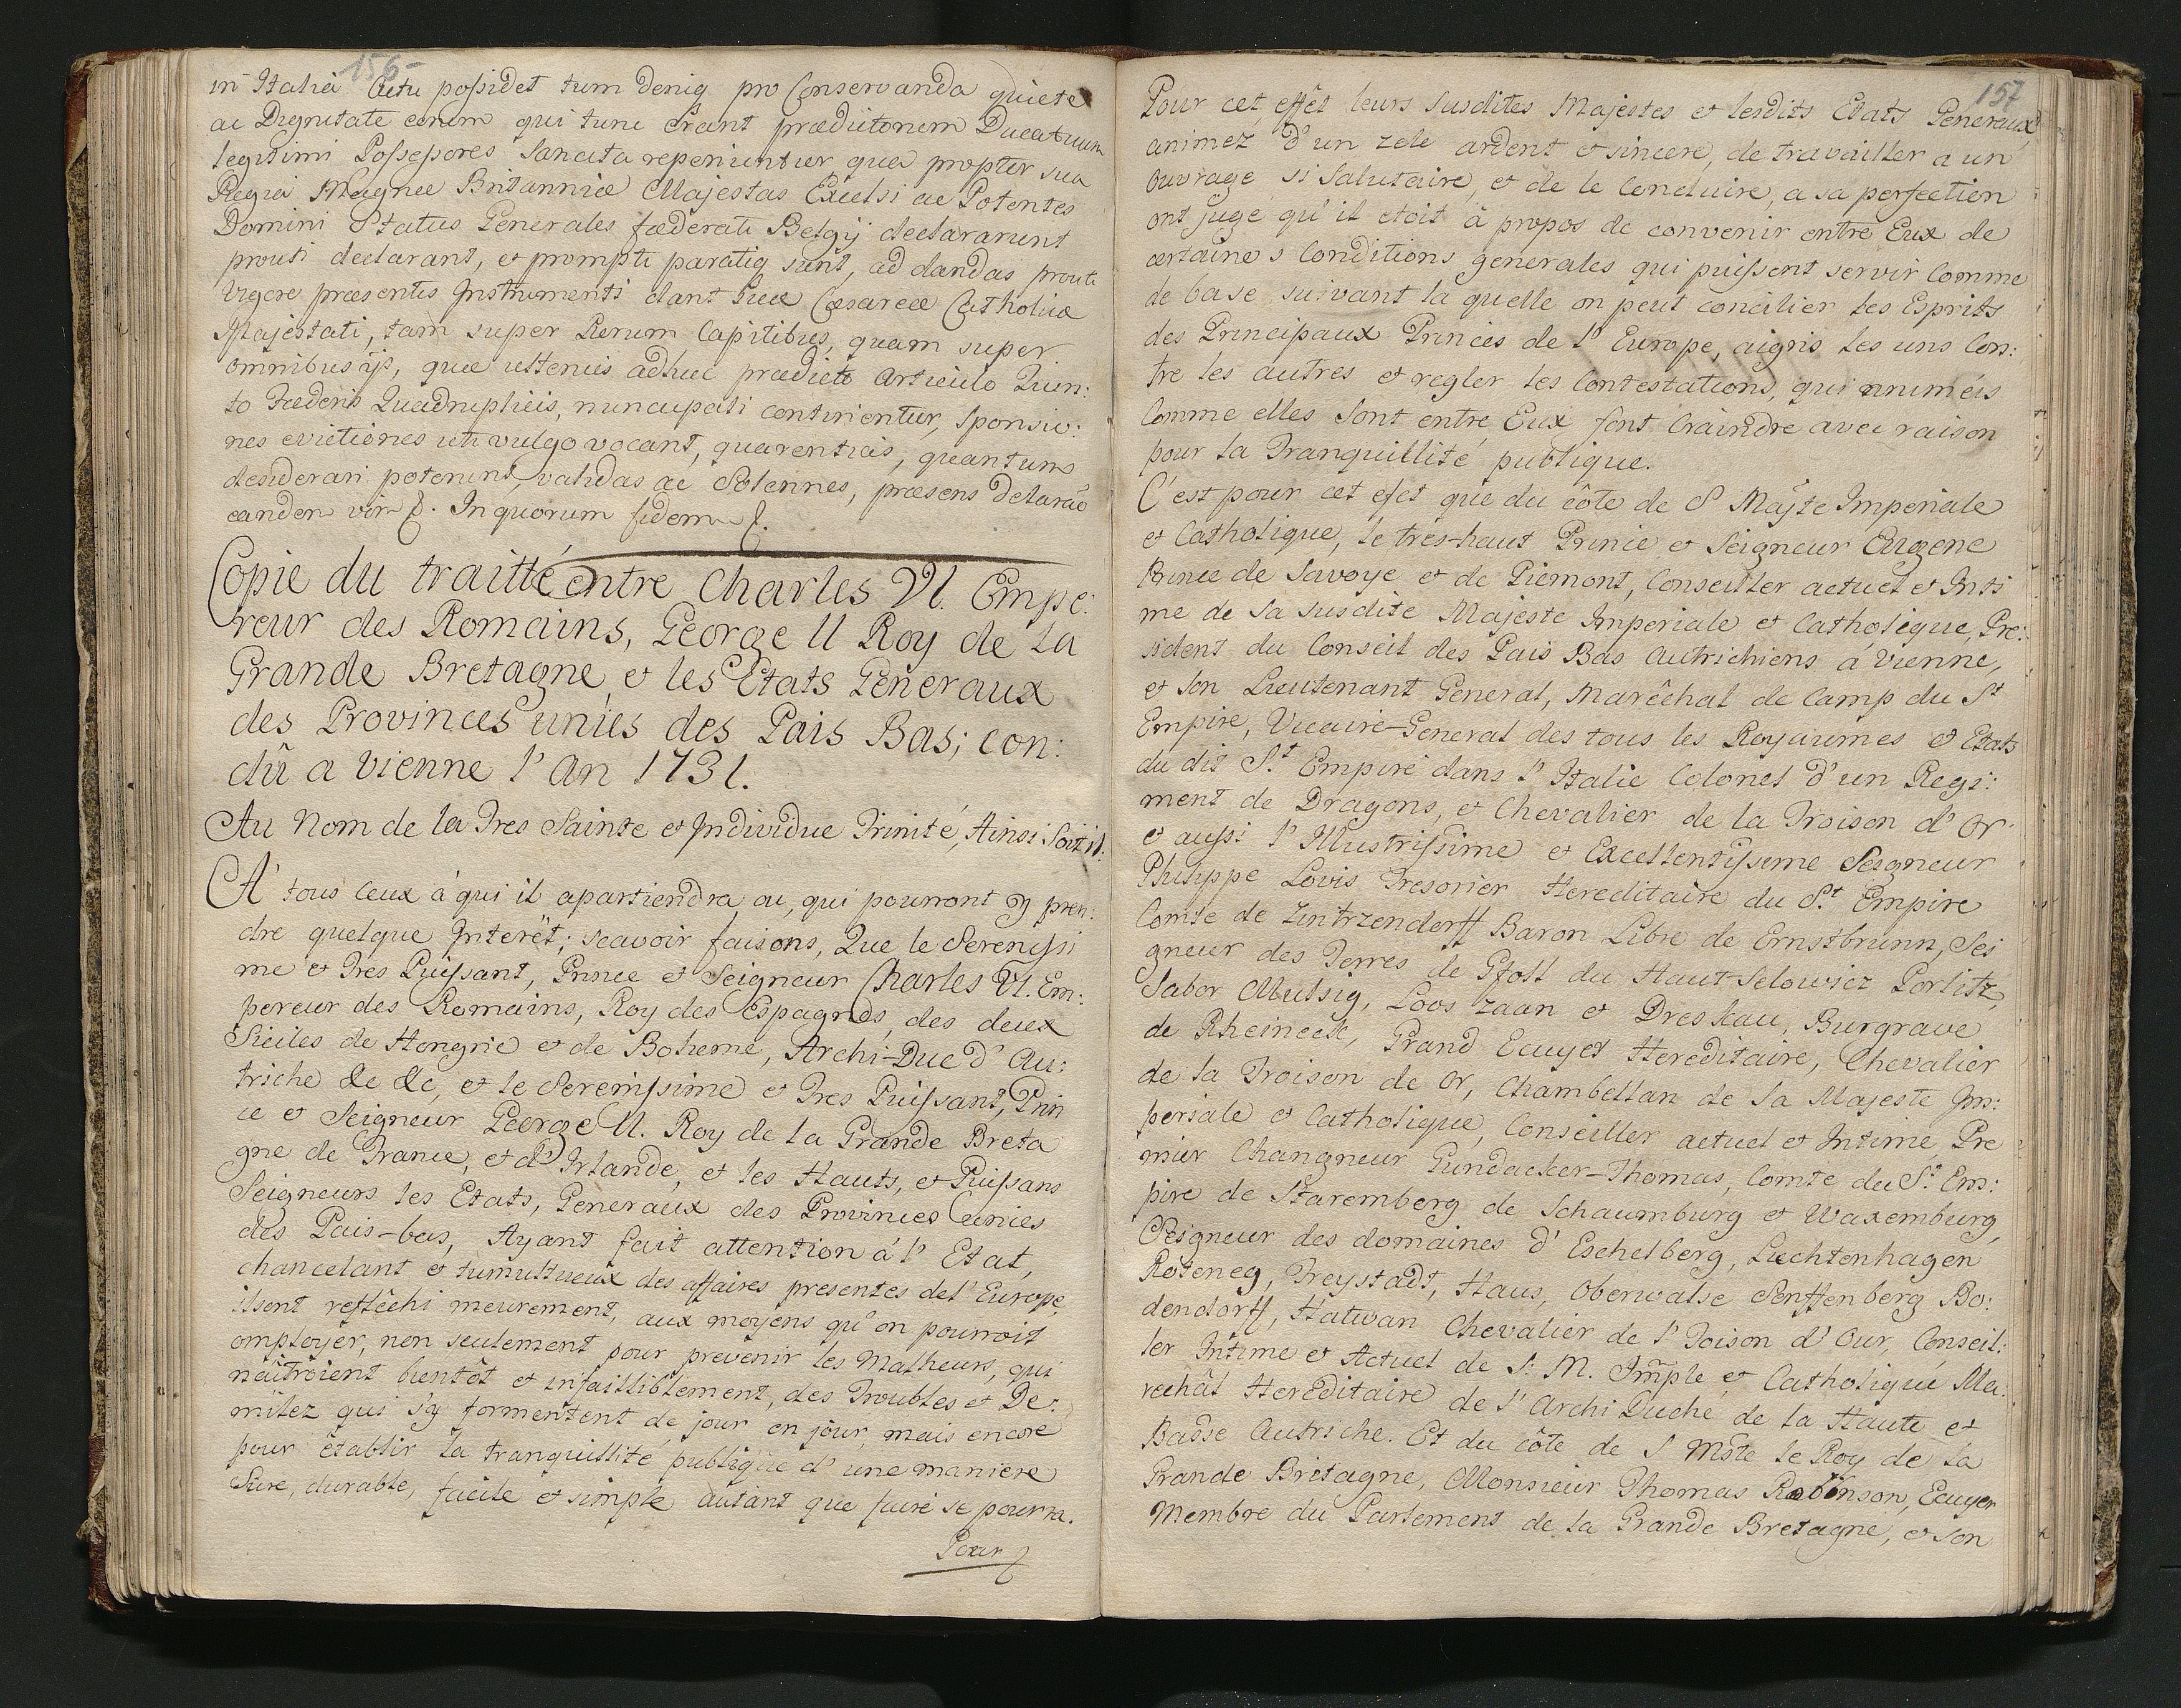 156
in Italia actu possidet tum deniq pro Conservanda quiete
ac Dignitate eorum qui tunc erant praedictorum Ducatuum
legitimi Possessores sancita reperiuntur qua propter sua
Regia Magnae Britanniae Majestas Excelsi ac Potentes
Domini Status Generales foederati Belgij declararunt
prouti declarant, et prompti paratiq sunt, ad dandas prouti
Vigore praesentis Instrumenti dant Suae Caesareae Catholicae
Majestati, tam super Rerum Capitibus, quam super
omnibus ijs, quae ultenus adhuc praedicto Articulo Quin:
to Foederis Quadruplicis, nuncupati continentur, Sponsio:
nes evictiones uti vulgo vocant, quarentias, quantum
desiderari poterunt, validas ac Solennes, praesens Declarao
eandem vim &. In quorum fidem &.
Copie du traitté entre Charles VI. Empe:
reur des Romains, George II Roy de la
Grande Bretagne, et les Etats Généraux
des Provinces unies des Pais Bas; con:
clû a Vienne l'An 1731.
Au Nom de la Tres Sainte et Individue Trinité, Ainsi Soit il:
A' tous Ceux à qui il apartiendra ou, qui pourront y pren:
dre quelque Interët; scavoir faisons, Que le Serenissi
me et Tres Puissant, Prince et Seigneur Charles VI. Em:
pereur des Romains, Roy des Espagnes, des deux
Siciles de Hongrie et de Boheme, Archi-Duc d' Au:
triche &c &c, et le Serenissime et Tres Puissant, Prin
ce et Seigneur George II. Roy de la Grande Breta
gne de France, et d' Irlande, et les Hauts, et Puissans
Seigneurs les Etats, Generaux des Provinces unies
des Pais-bas, Ayant fait attention á l' Etat,
chancelant et tumultueux des affaires presentes de l' Europe,
ilsont reflêchi meurement, aux moyens qu'on pourroit
employer, non seulement pour prevenir les Malheurs, qui
naîtroient bientôt et infailliblement, des Troubles et De:
mîlez qui s'y formentent de jour en jour, mais encore
pour êtablir la tranquillité publique d' une maniere
Sure, durable, facile et simple autant que faire se pourra.
Pour
157
Pour cet effêt leurs susdites Majestes et lesdits Etats Generaux,
animez d'un zele ardent et sincere, de travailler a un
Ouvrage si Salutaire, et de le Conduire, a sa perfection
ont jugé qu'il etoit â propos de convenir entre Eux de
certaines Conditions generales qui puissent servir Comme
de base suivant la quelle on peut concilier les Esprits
des Principaux Princes de l' Europe, aigris les uns Con:
tre les autres et regler les Contestations, qui animéés
Comme elles sont entre Eux font Craindre avec raison
pour la Tranquillité publique.
C'est pour cet efet que du côte de S Majte Imperiale
et Catholique, le très-haut Prince et Seigneur Eugene
Prince de Savoye et de Piemont, Conseiller actuel et Inti
me de sa susdite Majeste Imperiale et Catholique, Pre:
sident du Conseil des Pais Bas Autrichiens á Vienne,
et son Lieutenant General, Marêchal de Camp du St
Empire, Vicaire-General des tous les Royaumes et Etats
du dit St. Empire dans l' Italie Colonel d'un Regi:
ment de Dragons, et Chevalier de la Troison d' Or
et aussi l' Illustrissime et Excellentissime Seigneur
Philippe Lovis Tresorier Hereditaire du St. Empire
Comte de Zintrzendorff Baron Libre de Ernstbrunn, Sei
gneur des Terres de Gfoll du Haut-Selowicz Porlitz,
Sabor Mulsig, Loos Zaan et Dreskau, Burgrave
de Rheineck, Grand Ecuyer Hereditaire, Chevalier
de la Troison de Or, Chambellan de Sa Majeste Im:
periale et Catholique, Conseiller actuel et Intime, Pre
mier Changneur Gundacker-Thomas, Comte du St. Em:
pire de Staremberg de Schaumburg et Waxemburg,
Seigneur des domaines d' Eschelberg, Liechtenhagen
Roteneg, Freystadt, Haus, Oberwalse Senftenberg Bo:
dendorff, Hatwan Chevalier de l' Toison d' Our, Conseil:
ler Intime et Actuel de S. M. Imple et Catholique Ma:
rechât Hereditaire de l' Archi Duche de la Haute et
Basse Autriche. Et du côte de S Mste le Roy de la
Grande Bretagne, Monsieur Thomas Robinson, Ecuyer
Membre du Parlement de la Grande Bretagne, et son